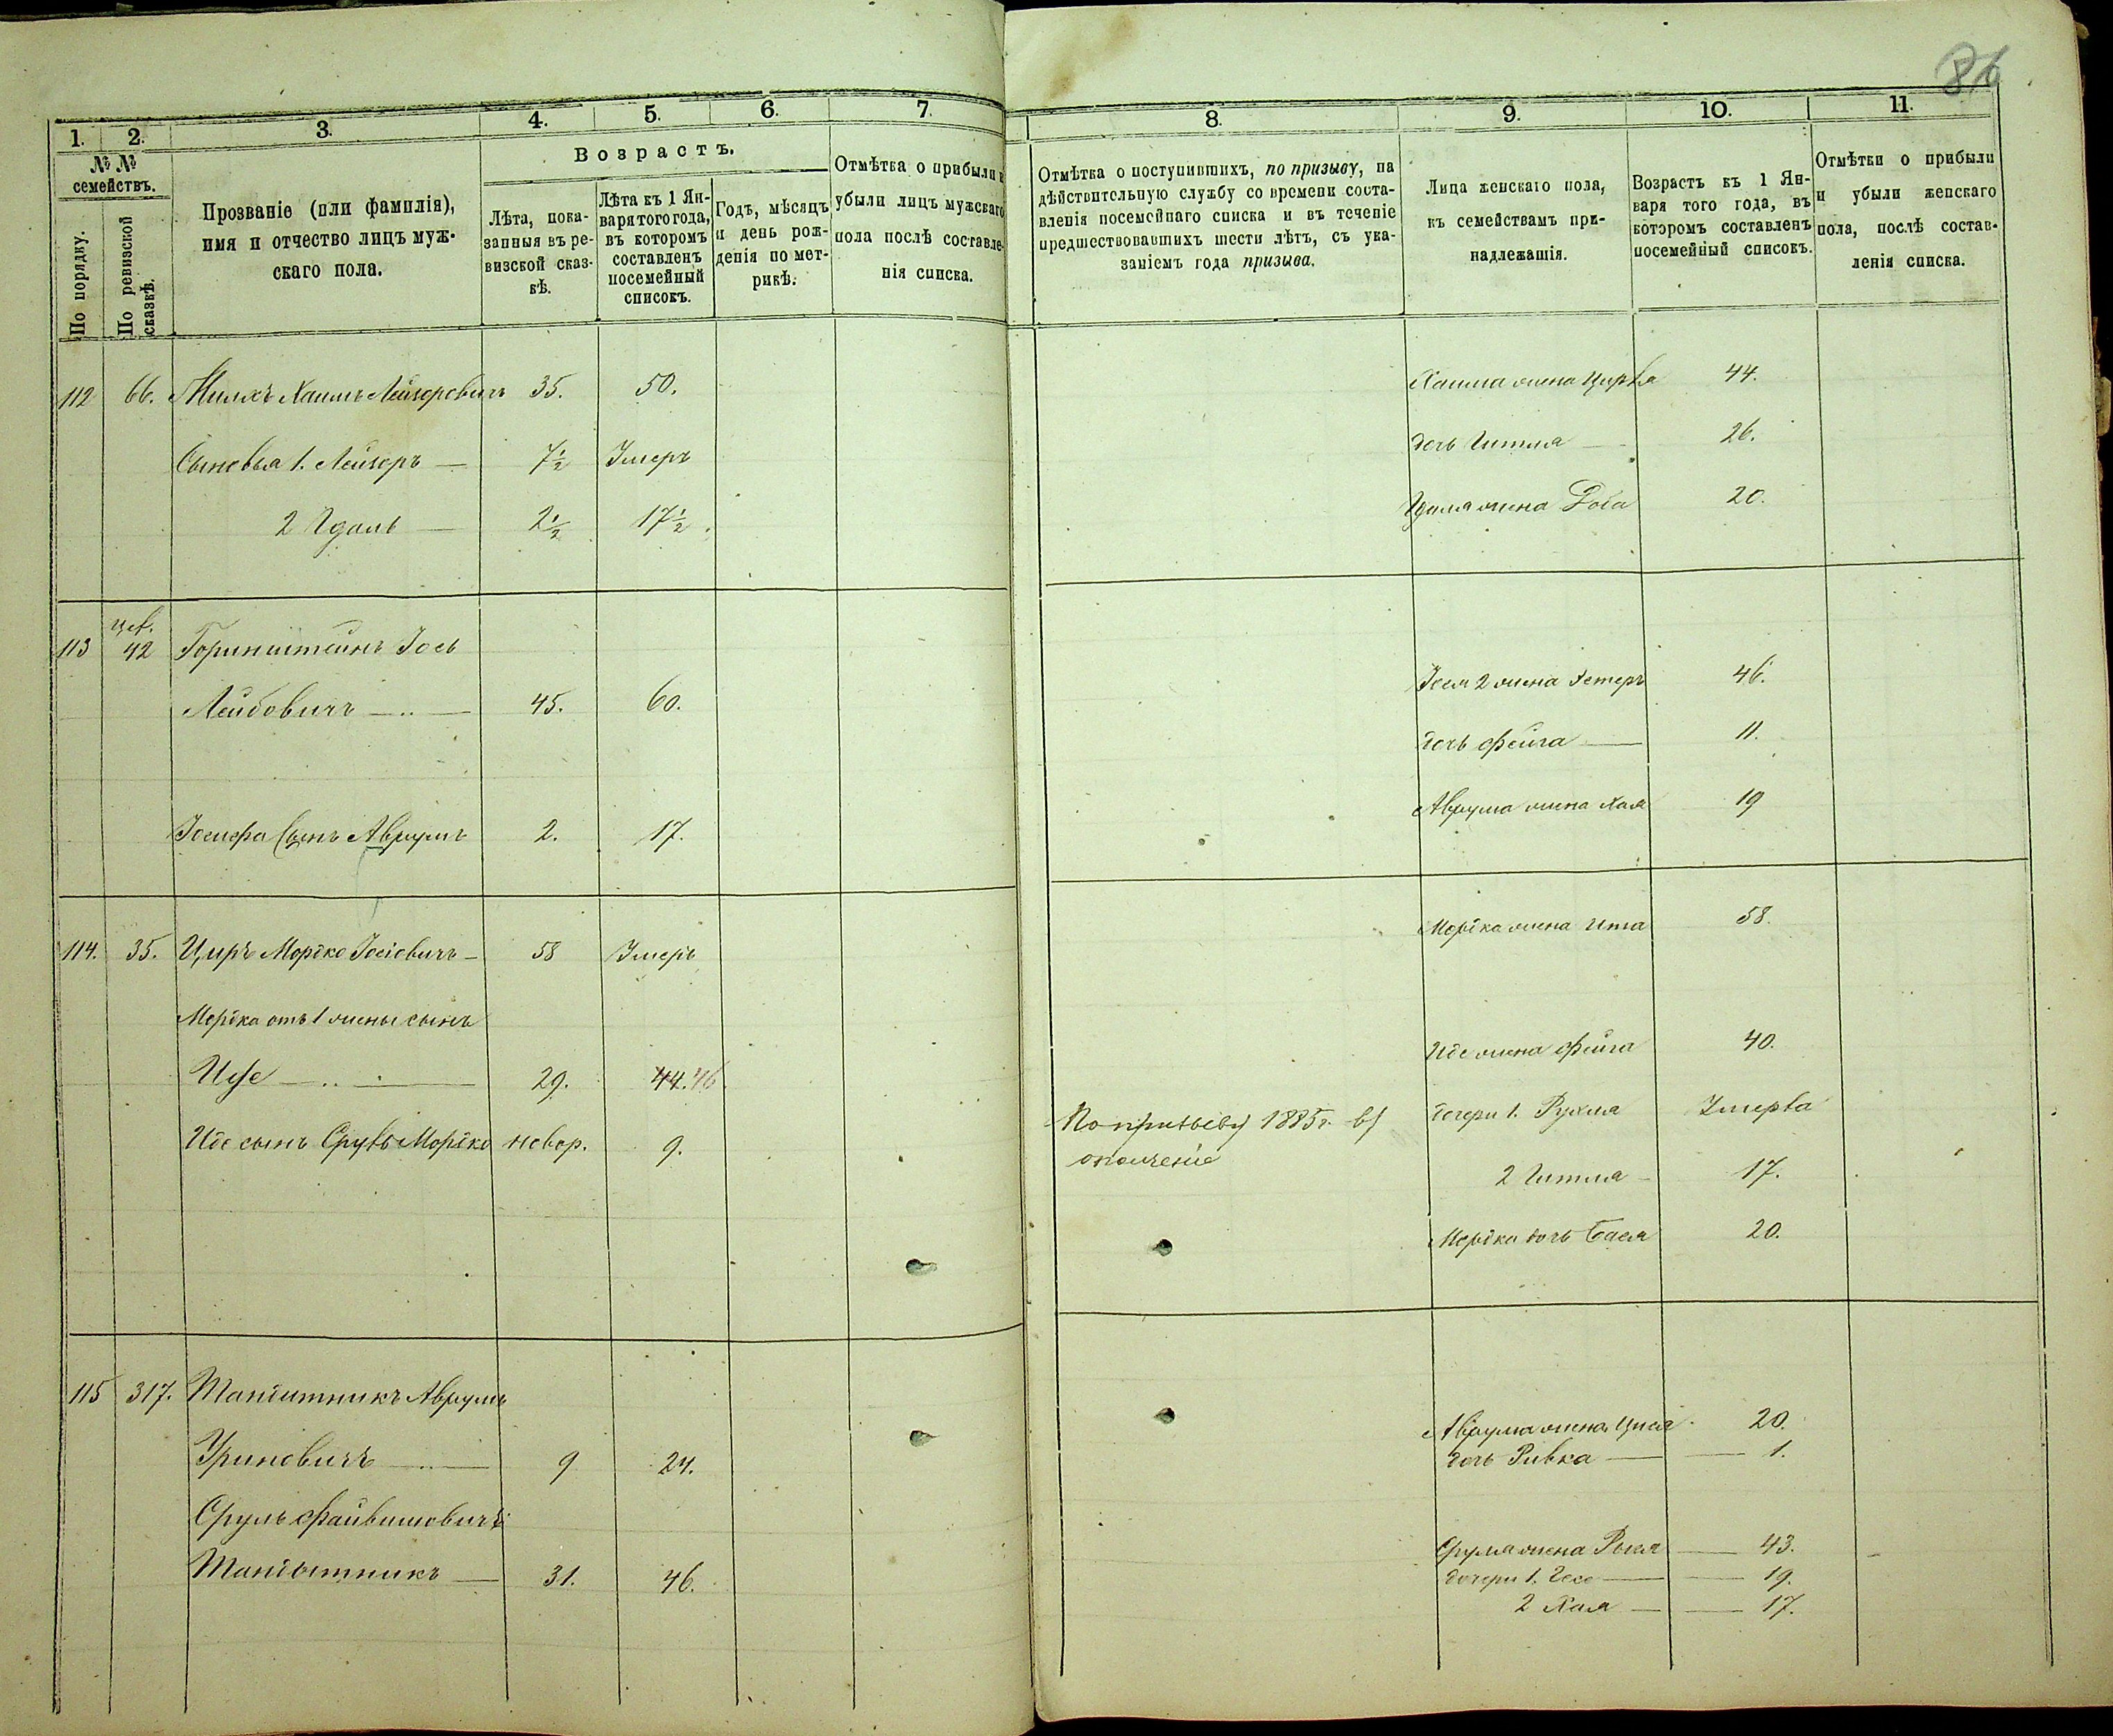 86
1. 2. 3. 4. 5. 6. 7.
№ № семействъ.
По порядку.
По ревизской сказкѣ.
Прозваніе (или фамилія),
имя и отчество лицъ муж-
скаго пола.
Возрастъ.
Лѣта, пока-
занныя въ ре-
визской сказ-
кѣ.
Лѣта къ 1 Ян-
варя того года,
въ которомъ
составленъ
посемейный
списокъ.
Годъ, мѣсяцъ
и день рож-
денія по мет-
рикѣ.
Отмѣтка о прибыли и
убыли лицъ мужскаго
пола послѣ составле-
нія списка.
112 66. Милхъ Хаимъ Лейзеровичъ 35. 50.
Сыновья 1. Лейзоръ — 7½ Умеръ
2 Идаль — 2½ 17½.
113 42 Горинштейнъ Іось
Лейбовичъ — 45. 60.
Іосифа Сынъ Аврумъ 2. 17.
114. 35. Циръ Мордко Іосіовичъ — 58 Умеръ
Мордка отъ 1 жены сынъ
Иде — 29. 44. 46
Иде сынъ Сруль Мордко новор. 9.
115 317. Тандитникъ Аврумъ
Уриновичъ — 9 24.
Сруль Файвишовичъ
Тандытникъ — 31. 46.
8. 9. 10. 11.
Отмѣтка о поступившихъ, по призыву, на
дѣйствительную службу со времени соста-
вленія посемейнаго списка и въ теченіе
предшествовавшихъ шести лѣтъ, съ ука-
заніемъ года призыва.
Лица женскаго пола,
къ семействамъ при-
надлежащія.
Возрастъ къ 1 Ян-
варя того года, въ
которомъ составленъ
посемейный списокъ.
Отмѣтки о прибыли
и убыли женскаго
пола, послѣ состав-
ленія списка.
Хаима жена Цирва 44.
дочь Гитля — 26.
Идаля жена Роза 20.
Іося 2 жена Эстеръ 46.
дочь Фейга — 11.
Аврума жена Хая 19
Мордка жена Ита 58.
Иде жена Фейга 40.
По призыву 1885 г. въ
ополченіе
дочери 1. Рухля Умерла
2 Гитля — 17.
Мордка дочь Бася 20.
Аврума жена Цися 20.
дочь Ривка — 1.
Сруля жена Рися — 43.
дочери 1. — 19.
2 Хая — 17.